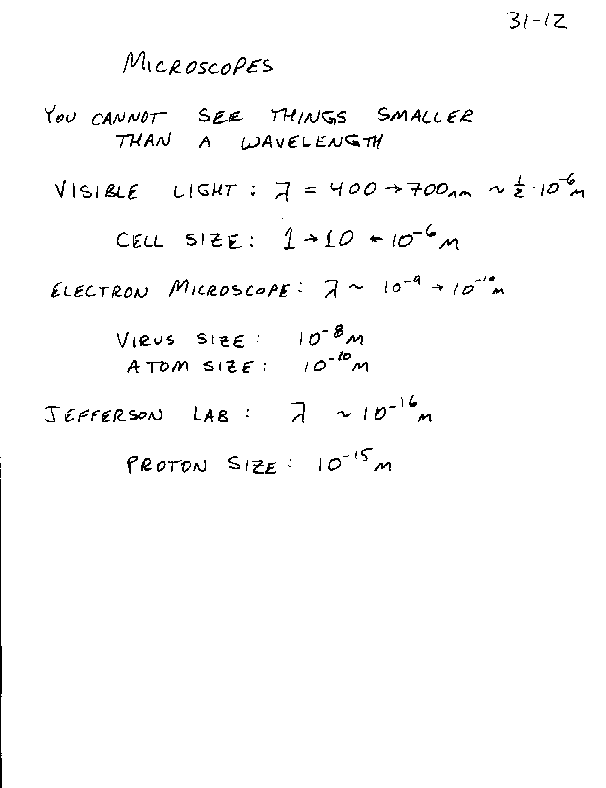 31-12
MICROSCOPES
YOU CANNOT SEE THINGS SMALLER
THAN A WAVELENGTH
VISIBLE LIGHT : λ = 400 → 700nm ~ ½·10⁻⁶m
CELL SIZE : 1 → 10 * 10⁻⁶m
ELECTRON MICROSCOPE : λ ~ 10⁻⁹ → 10⁻¹⁰m
VIRUS SIZE : 10⁻⁸m
ATOM SIZE : 10⁻¹⁰m
JEFFERSON LAB : λ ~ 10⁻¹⁶m
PROTON SIZE : 10⁻¹⁵m